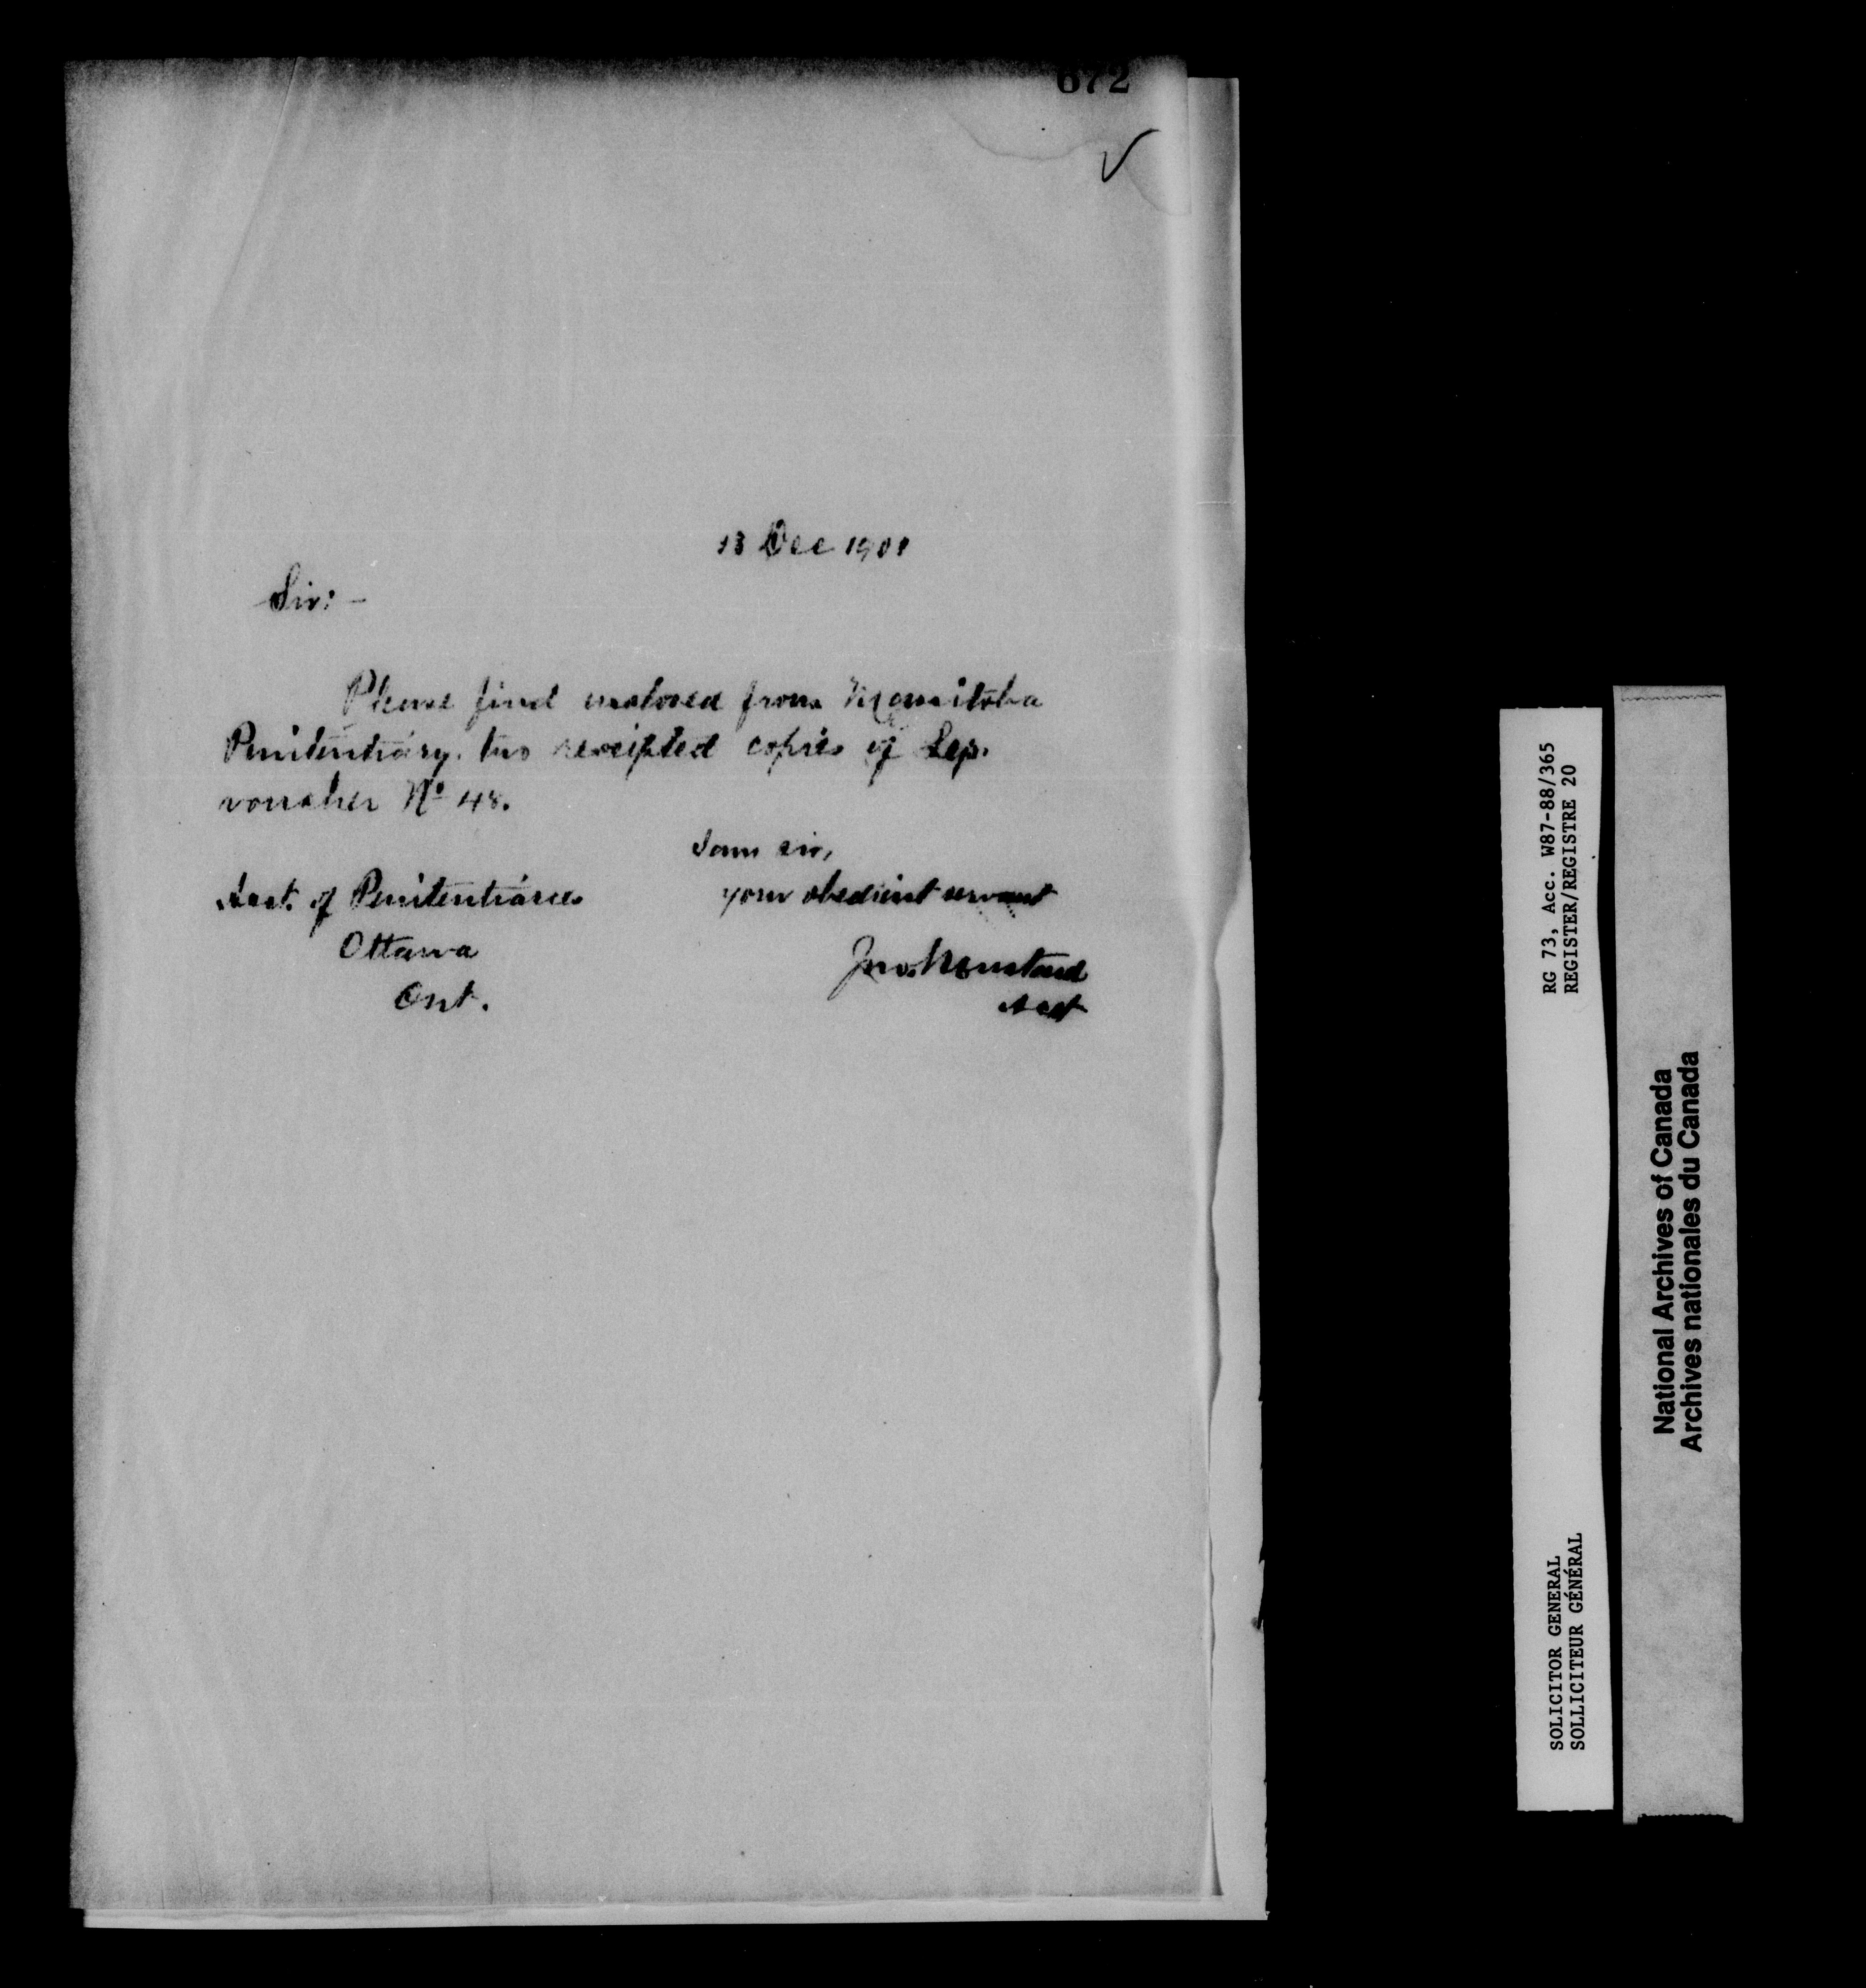 672
13 Dec 1901
Sir: -
Please find enclosed from Manitoba
Penitentiary. two receipted copies of Sep.
voucher No 48.
I am sir,
your obedient servant
Acct. of Penitentiaries
Ottawa
Ont.
Jno.
Acct
RG 73, Acc. W87-88/365
REGISTER/REGISTRE 20
SOLICITOR GENERAL
SOLLICITEUR GÉNÉRAL
National Archives of Canada
Archives nationales du Canada